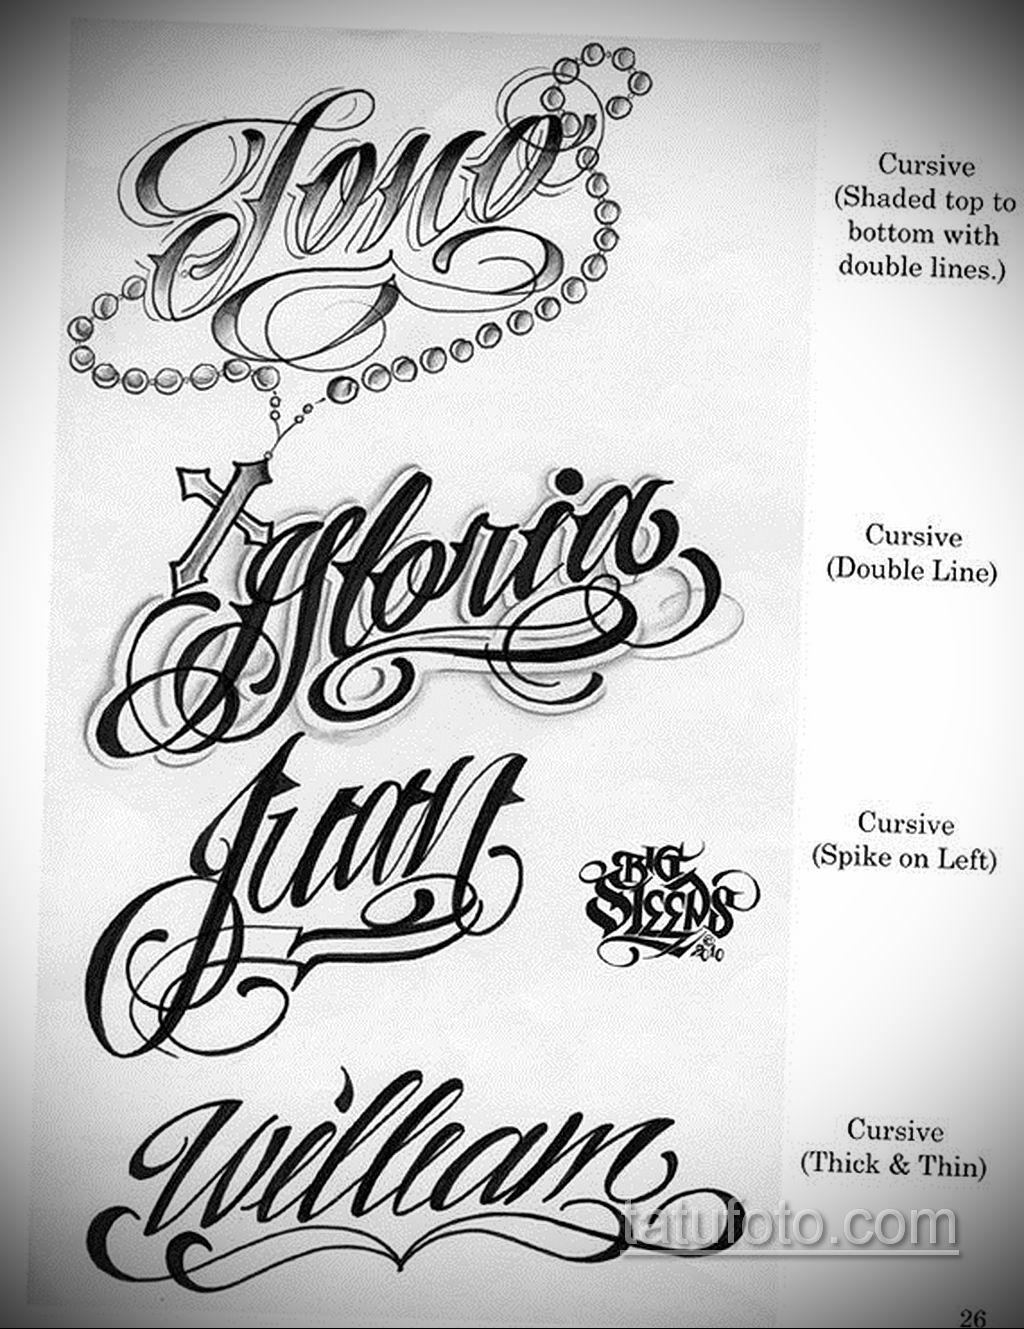 Jono
Cursive
(Shaded top to
bottom with
double lines.)
Storia
Cursive
(Double Line)
Juan
Cursive
(Spike on Left)
BIG
SLEEPS
© 2010
William
Cursive
(Thick & Thin)
tatufoto.com
26